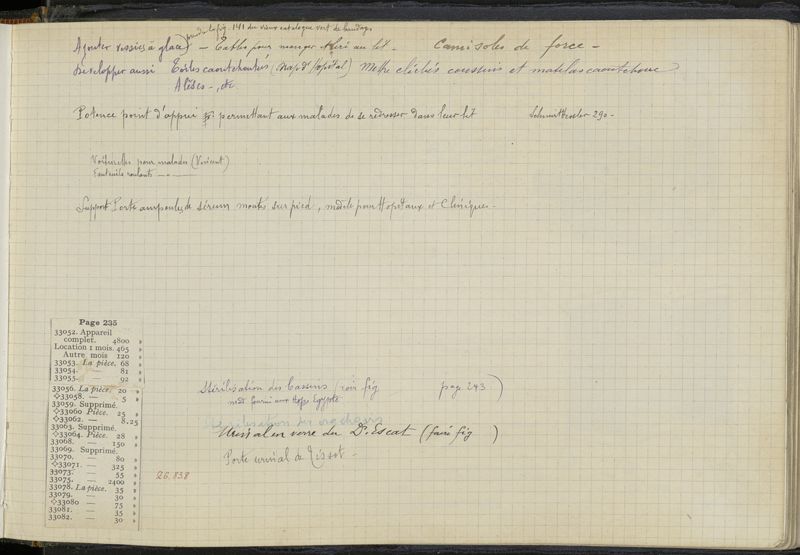 prendre la fig. 141 du vieux catalogue vert de bandage
Ajouter vessies à glace) — Tables pour manger au lit - Camisoles de force -
Developper aussi Toiles caoutchoutés (drap d'hopital) Mettre clichés coussins et matelas caoutchouc
Alèses -, etc
Potence point d'appui permettant aux malades de se redresser dans leur lit 290 -
Voiturettes pour malades (Vincent)
Fauteuils roulants — " —
Support Porte ampoules de sérum montés sur pied, modèle pour Hopitaux et Cliniques -
Page 235
33052. Appareil
complet. 4800 »
Location 1 mois. 465 »
Autre mois 120 »
33053. La pièce. 68 »
33054. — 81 »
33055. — 92 »
33056. La pièce. 20 »
✧33058. — 5 »
33059. Supprimé.
✧33060 Pièce. 25 »
✧33062. — 8.25
33063. Supprimé.
✧33064. Pièce. 28 »
33068. — 150 »
33069. Supprimé.
33070. — 80 »
✧33071. — 325 »
33073. — 55 »
33075. — 2400 »
33078. La pièce. 35 »
33079. — 30 »
✧33080 — 75 »
33081. — 35 »
33082. — 30 »
26.838
Stérilisation des bassins (voir fig page 243)
Stérilisation des crachoirs
Urinal en verre du Dr Escat (faire fig )
Porte urinal de Tissot -